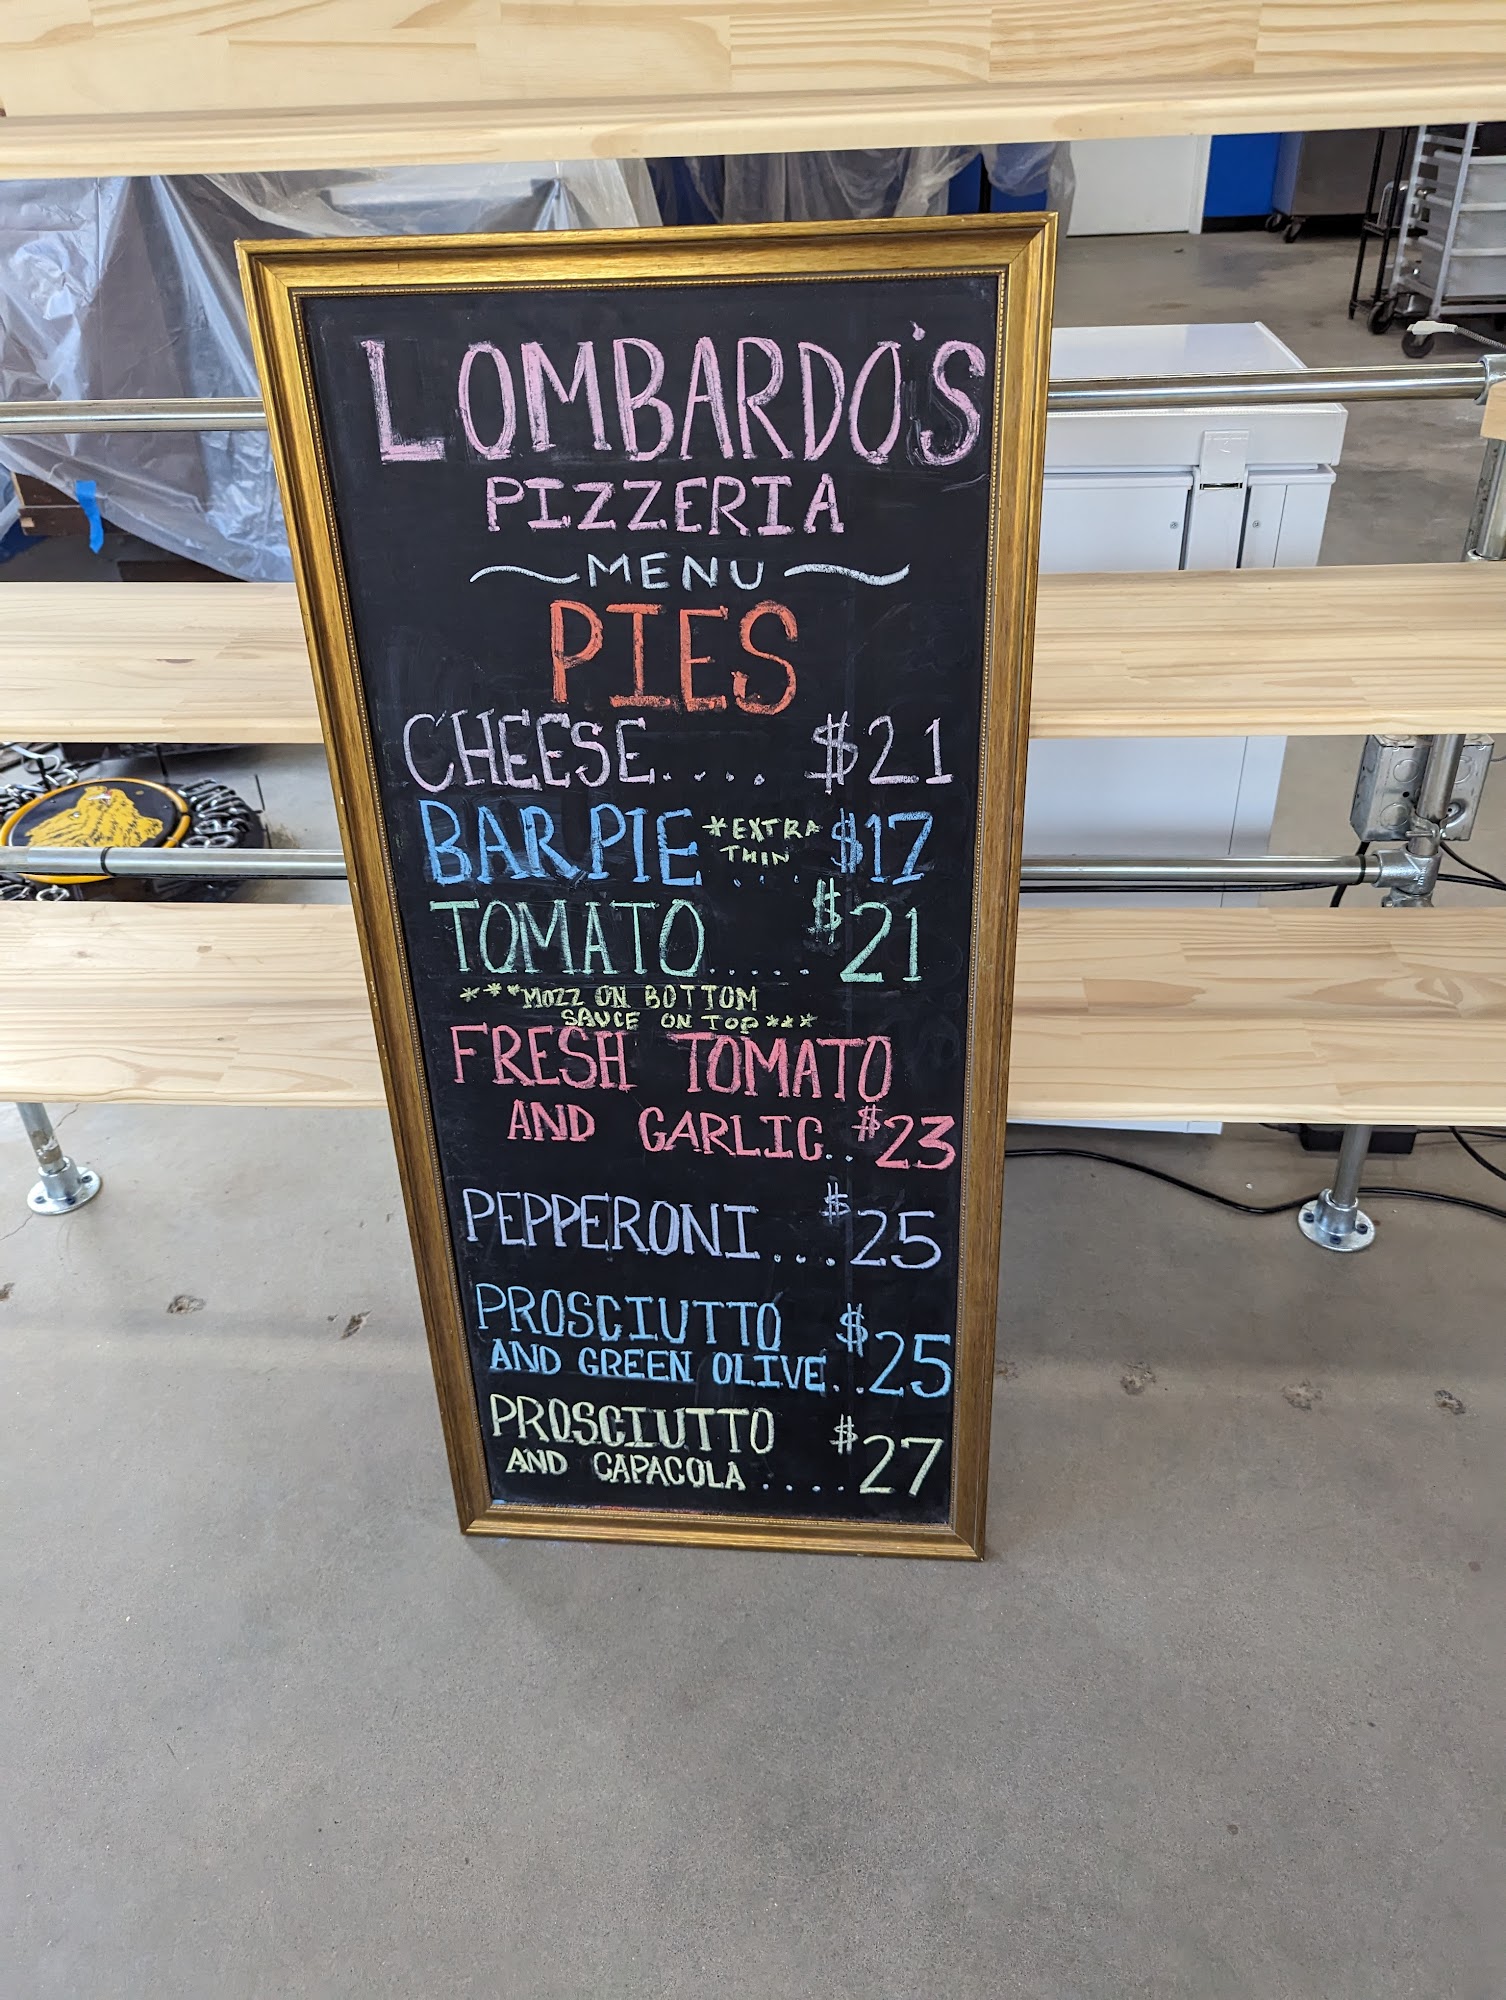 LOMBARDO'S
PIZZERIA
MENU
PIES
CHEESE.... $21
BAR PIE *EXTRA THIN .... $17
TOMATO..... $21
***MOZZ ON BOTTOM
SAUCE ON TOP***
FRESH TOMATO
AND GARLIC.. $23
PEPPERONI.... $25
PROSCIUTTO
AND GREEN OLIVE.. $25
PROSCIUTTO
AND CAPACOLA..... $27